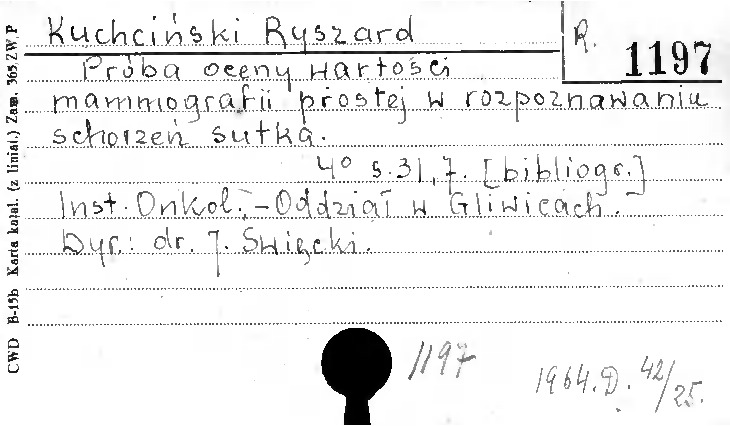 Kuchciński Ryszard
R. 1197
Próba oceny wartości
mammografii prostej w rozpoznawaniu
schorzeń sutka.
4° s. 31, 7. [bibliogr.]
Inst. Onkol. - Oddział w Gliwicach.
Dyr.: dr. J. Święcki.
1197
1964.D. 42/25.
CWD B-15b Karta katal. (z liniat.) Zam. 365 ZW. P